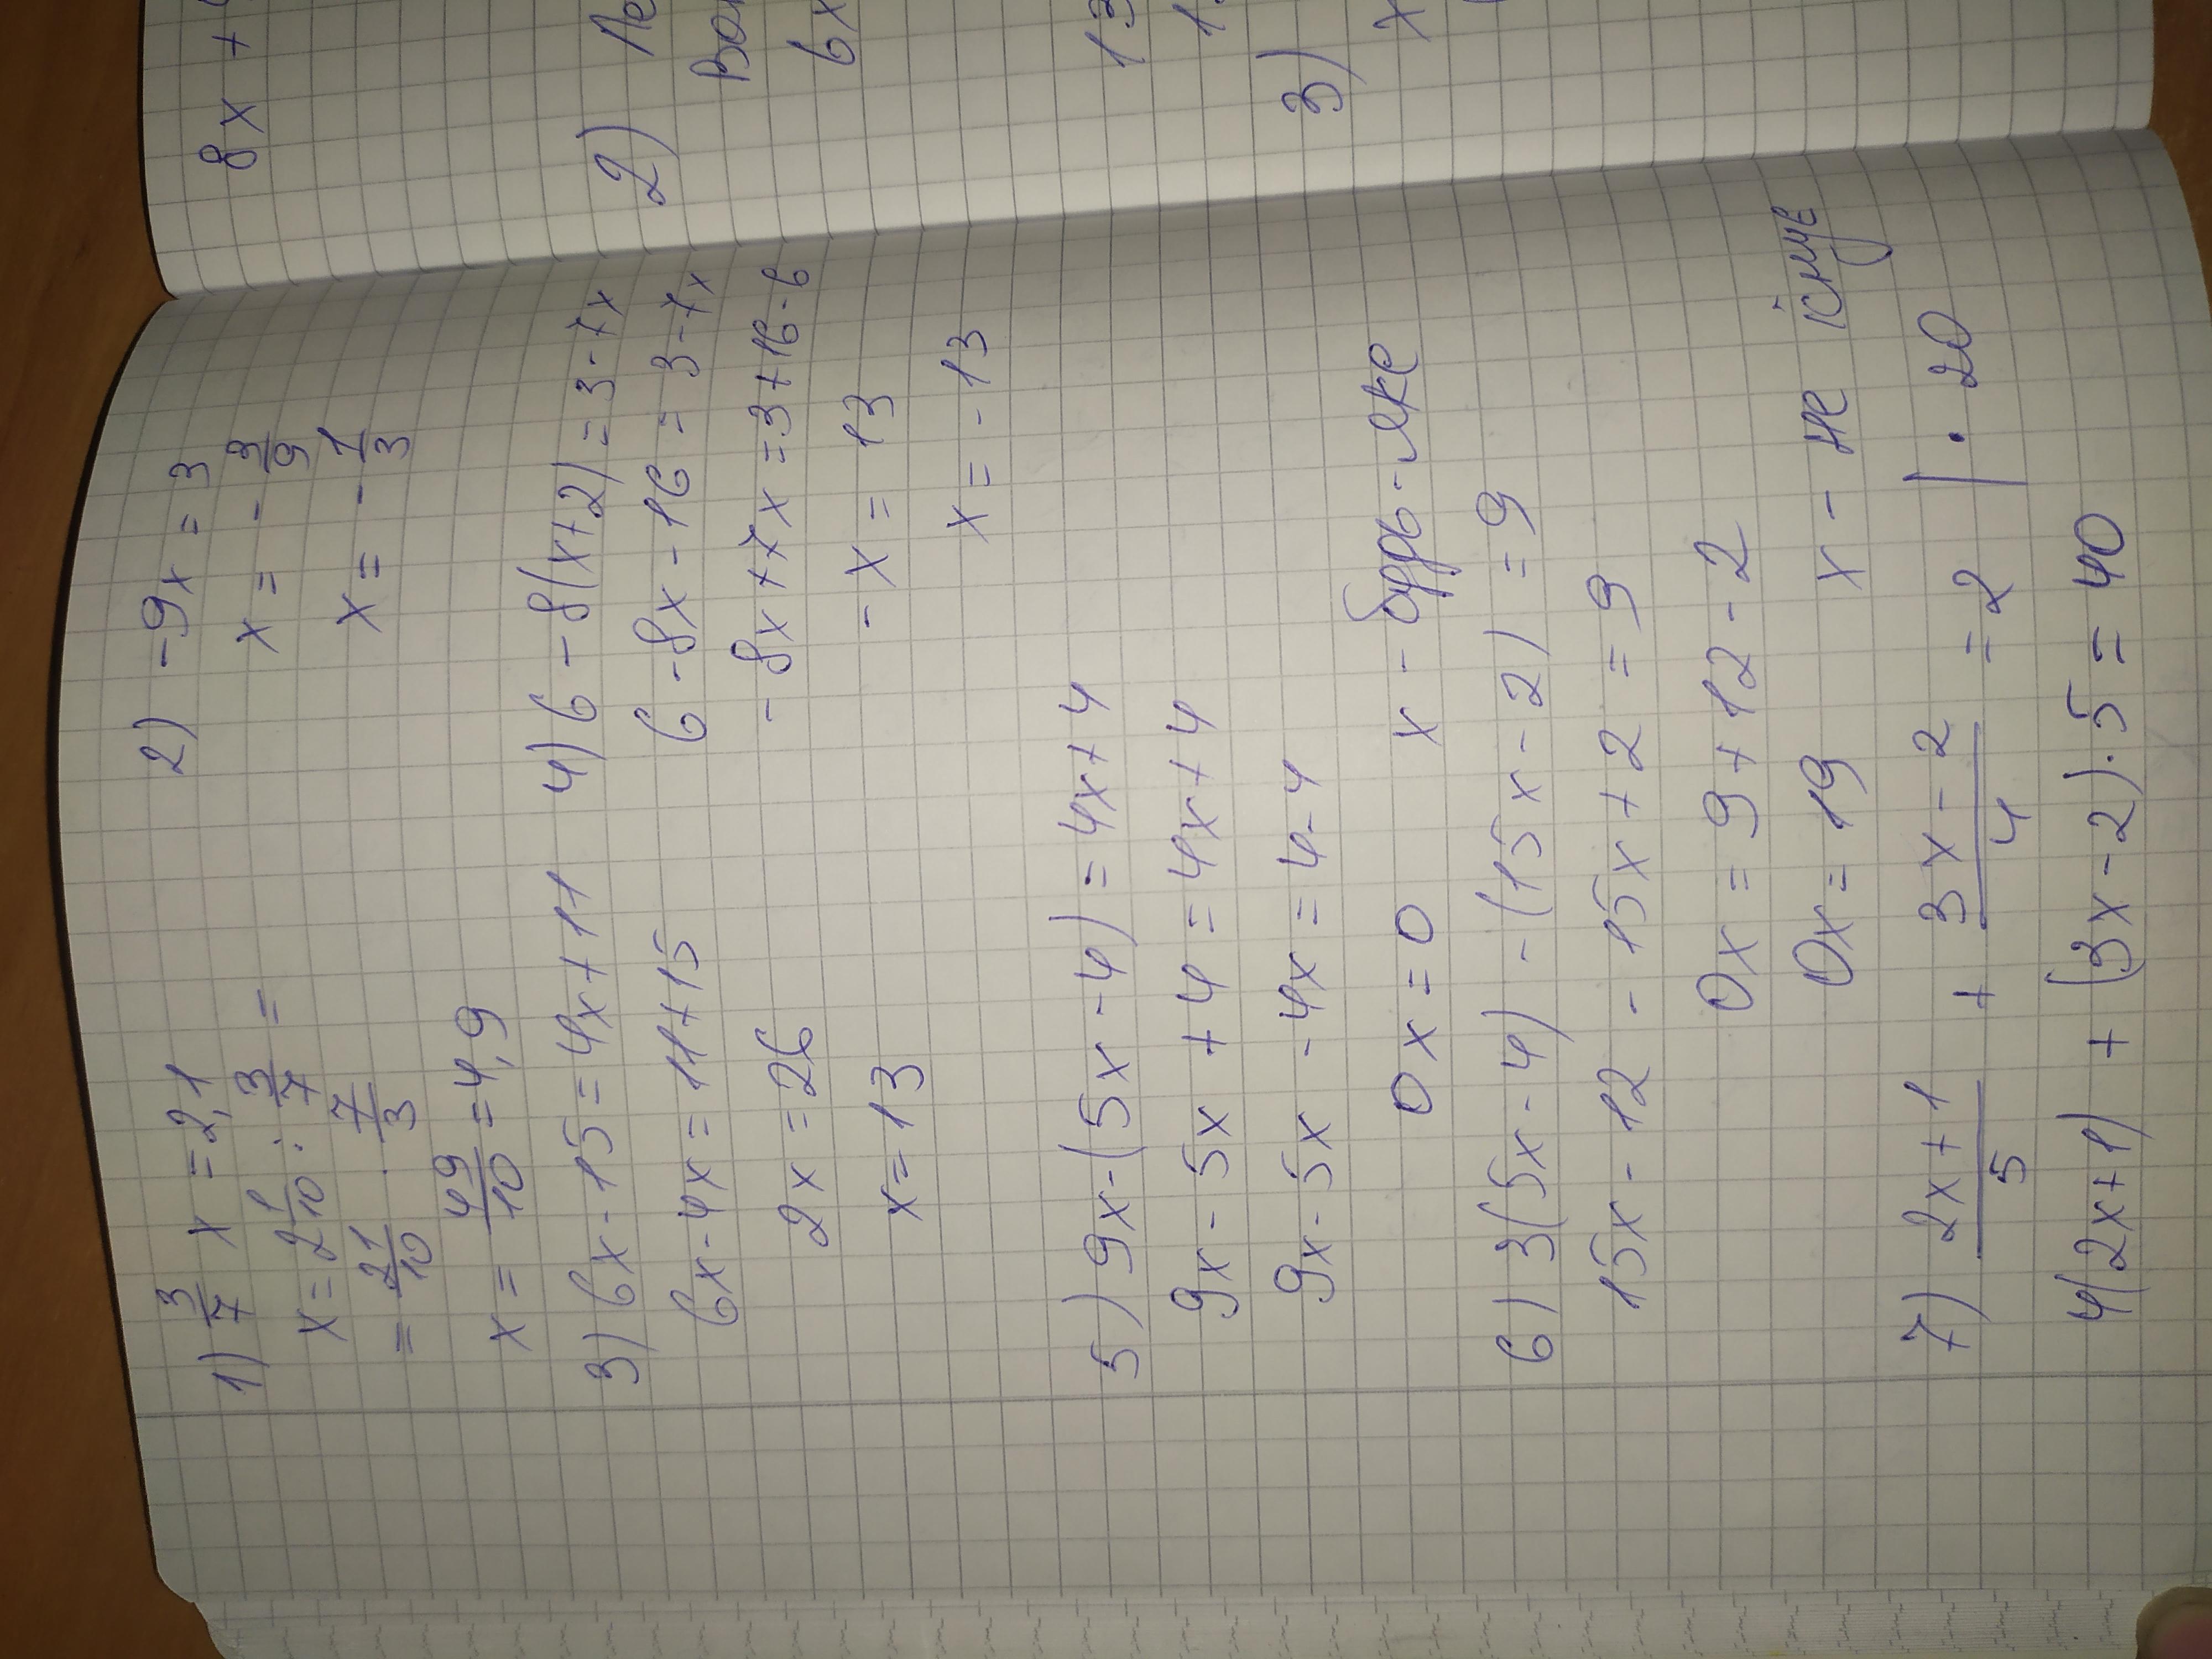 1) 3/7 x = 2,1
x = 2 1/10 : 3/7 =
= 21/10 · 7/3
x = 49/10 = 4,9
2) -9x = 3
x = - 3/9
x = - 1/3
3) 6x - 15 = 4x + 11
6x - 4x = 11 + 15
2x = 26
x = 13
4) 6 - 8(x+2) = 3 - 7x
6 - 8x - 16 = 3 - 7x
- 8x + 7x = 3 + 16 - 6
- x = 13
x = - 13
5) 9x - (5x - 4) = 4x + 4
9x - 5x + 4 = 4x + 4
9x - 5x - 4x = 4 - 4
0x = 0 x - будь-яке
6) 3(5x - 4) - (15x - 2) = 9
15x - 12 - 15x + 2 = 9
0x = 9 + 12 - 2
0x = 19 x - не існує
7) (2x + 1)/5 + (3x - 2)/4 = 2 | · 20
4(2x+1) + (3x - 2) · 5 = 40
8x +
2)
6x
13
3)
x